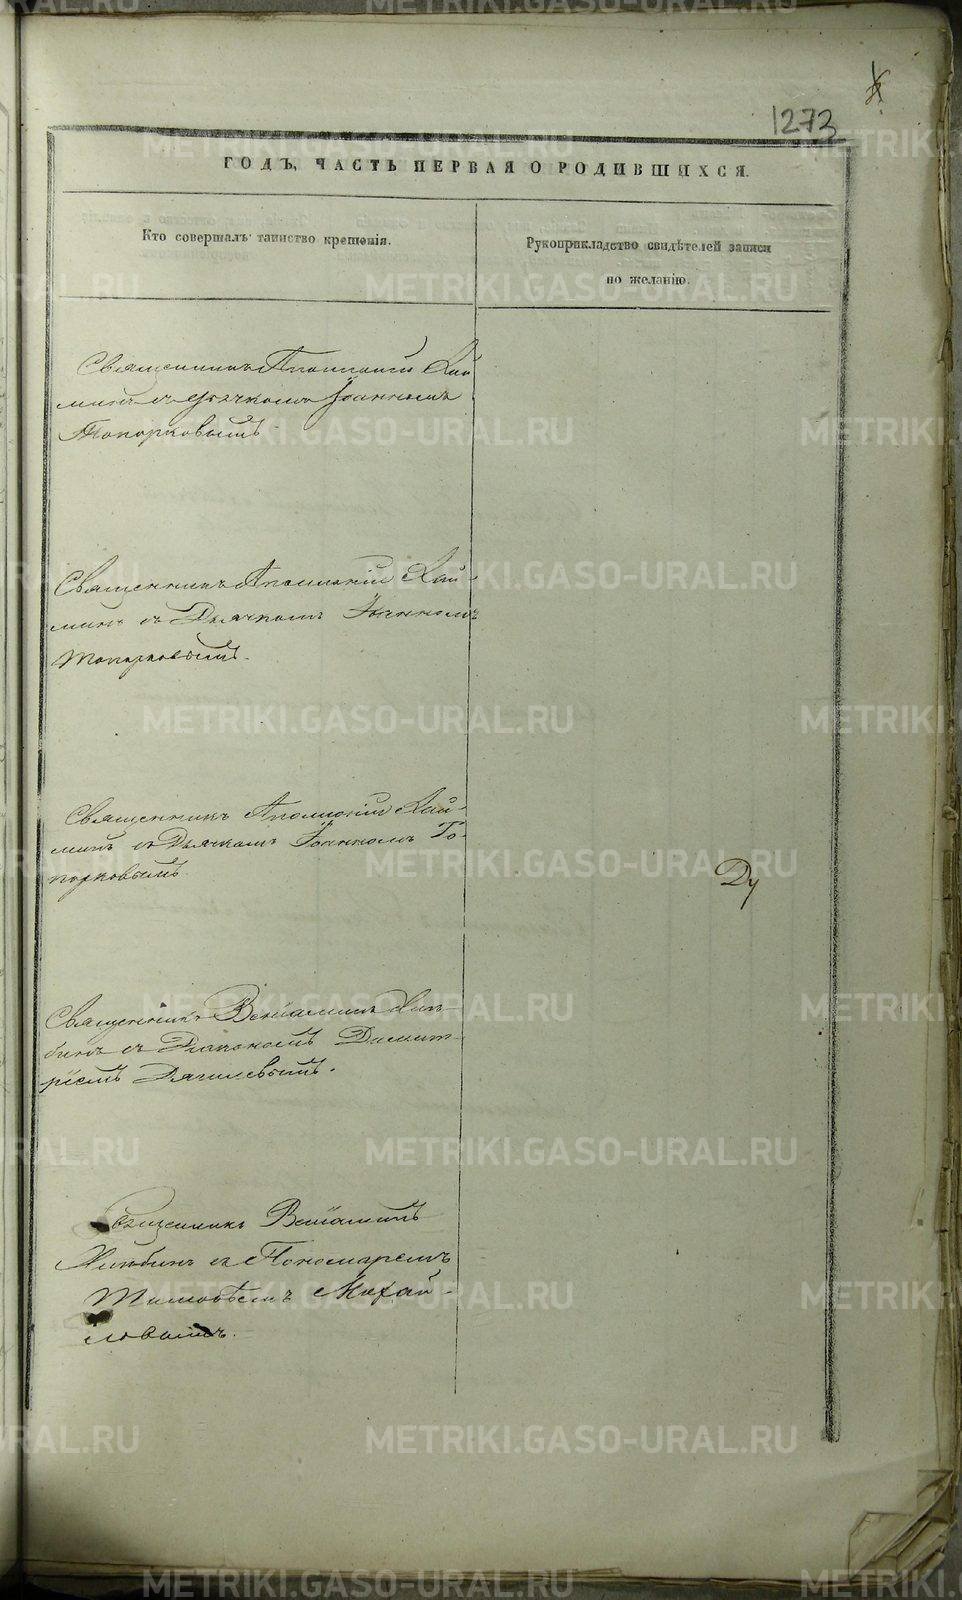 1273
ГОДЪ, ЧАСТЬ ПЕРВАЯ О РОДИВШИХСЯ.
Кто совершалъ таинство крещенія.
Рукоприкладство свидѣтелей записи
по желанію.
Священникъ Аполлоній Кай
минъ съ дьячкомъ Іоанномъ
Топорковымъ
Священникъ Аполлоній Кай-
минъ съ Дьячкомъ Іоанномъ
Топорковымъ.
Священникъ Аполлоній Кай-
минъ съ Дьячкомъ Іоанномъ То-
порковымъ.
Ду
Священникъ Веніаминъ
съ Діакономъ Димит-
ріемъ Дягилевымъ.
Священникъ Веніаминъ
съ Пономаремъ
Михай-
ловымъ.
METRIKI.GASO-URAL.RU